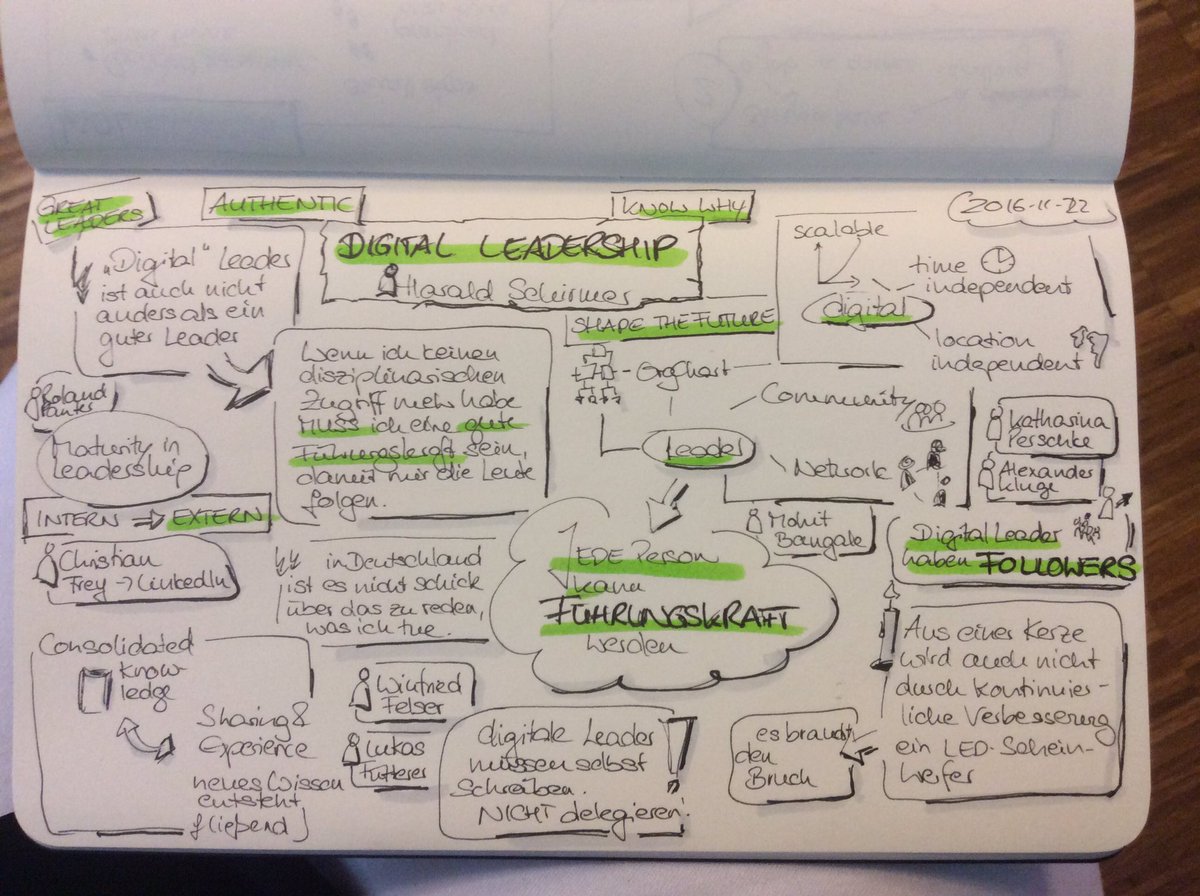 GREAT
LEADERS
AUTHENTIC
KNOW WHY
2016-11-22
DIGITAL LEADERSHIP
Harald Schirmer
"Digital" Leader
ist auch nicht
anders als ein
guter Leader
Wenn ich keinen
disziplinarischen
Zugriff mehr habe
MUSS ich eine gute
Führungskraft sein,
damit mir die Leute
folgen.
SHAPE THE FUTURE
OrgChart
Community
Leader
Network
scalable
time
independent
digital
location
independent
Roland
Panter
Maturity in
Leadership
INTERN ⇒ EXTERN
Christian
Frey → LinkedIn
in Deutschland
ist es nicht schick
über das zu reden,
was ich tue.
Katharina
Perschke
Alexander
Kluge
Mohit
Bangale
Digital Leader
haben FOLLOWERS
JEDE Person
kann
FÜHRUNGSKRAFT
werden
Consolidated
know
ledge
Sharing &
Experience
neues Wissen
entsteht
fließend
Winfried
Felser
Lukas
Fütterer
digitale Leader
müssen selbst
schreiben.
NICHT delegieren!
es braucht
den
Bruch
Aus einer Kerze
wird auch nicht
durch kontinuier-
liche Verbesserung
ein LED-Schein-
werfer